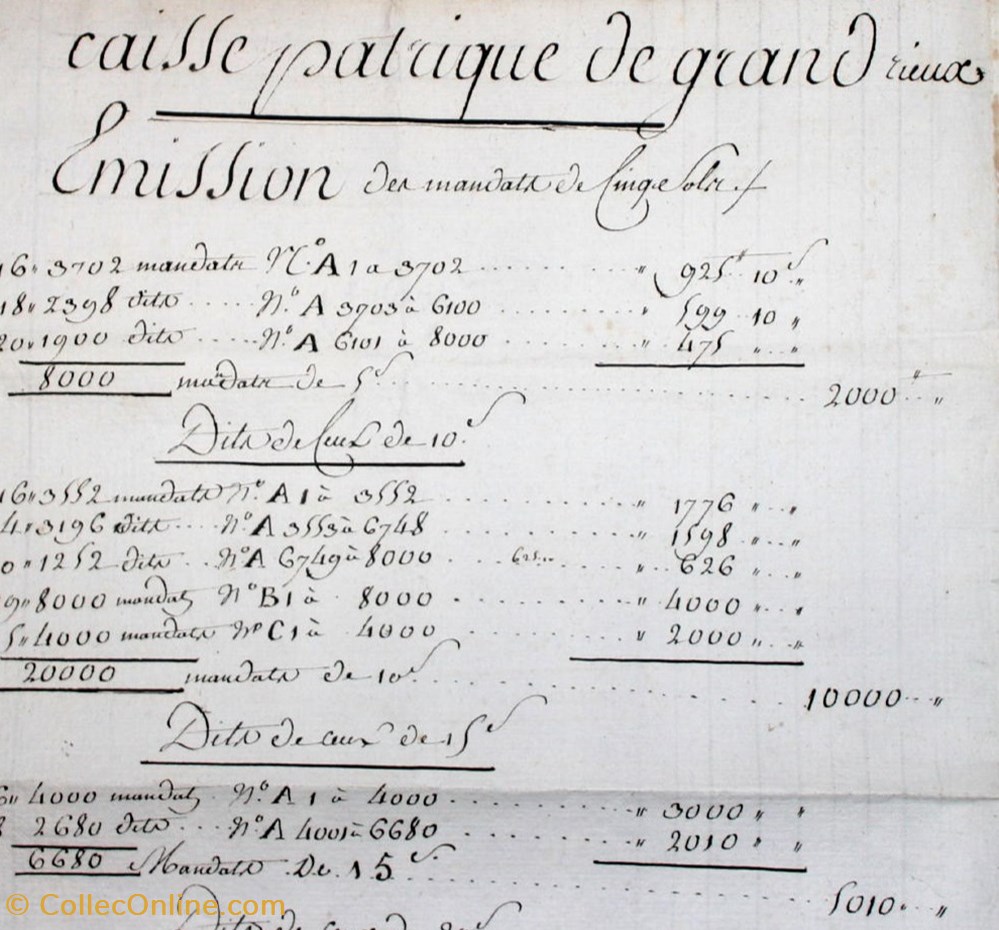 caisse patrique de grandrieux
Emission des mandats de Cinq Sols ./.
16 " 3702 mandats N.º A 1 a 3702 ........ " 925 tt 10 s "
18 " 2398 dits ..... N.º A 3703 à 6100 ........ " 599 10 "
20 " 1900 dits ..... N.º A 6101 à 8000 ........ " 475 " "
8000 mandats de 5 s ........ 2000 tt "
Dits de Ceux de 10 s
16 " 3552 mandats N.º A 1 à 3552 ........ " 1776 " "
4 " 3196 dits .... N.º A 3553 à 6748 ........ " 1598 " "
0 " 1252 dits .. N.º A 6749 à 8000 .... " 626 " "
9 " 8000 mandats N.º B 1 à 8000 ........ " 4000 " "
5 " 4000 mandats N.º C 1 à 4000 ........ " 2000 " "
20000 mandats de 10 s ........ 10000 "
Dits de ceux de 15 s
6 " 4000 mandats N.º A 1 à 4000 ........ " 3000 " "
8 2680 dits ... N.º A 4001 à 6680 ........ " 2010 " "
6680 Mandats De 15 s ........ 5010 "
© CollecOnline.com